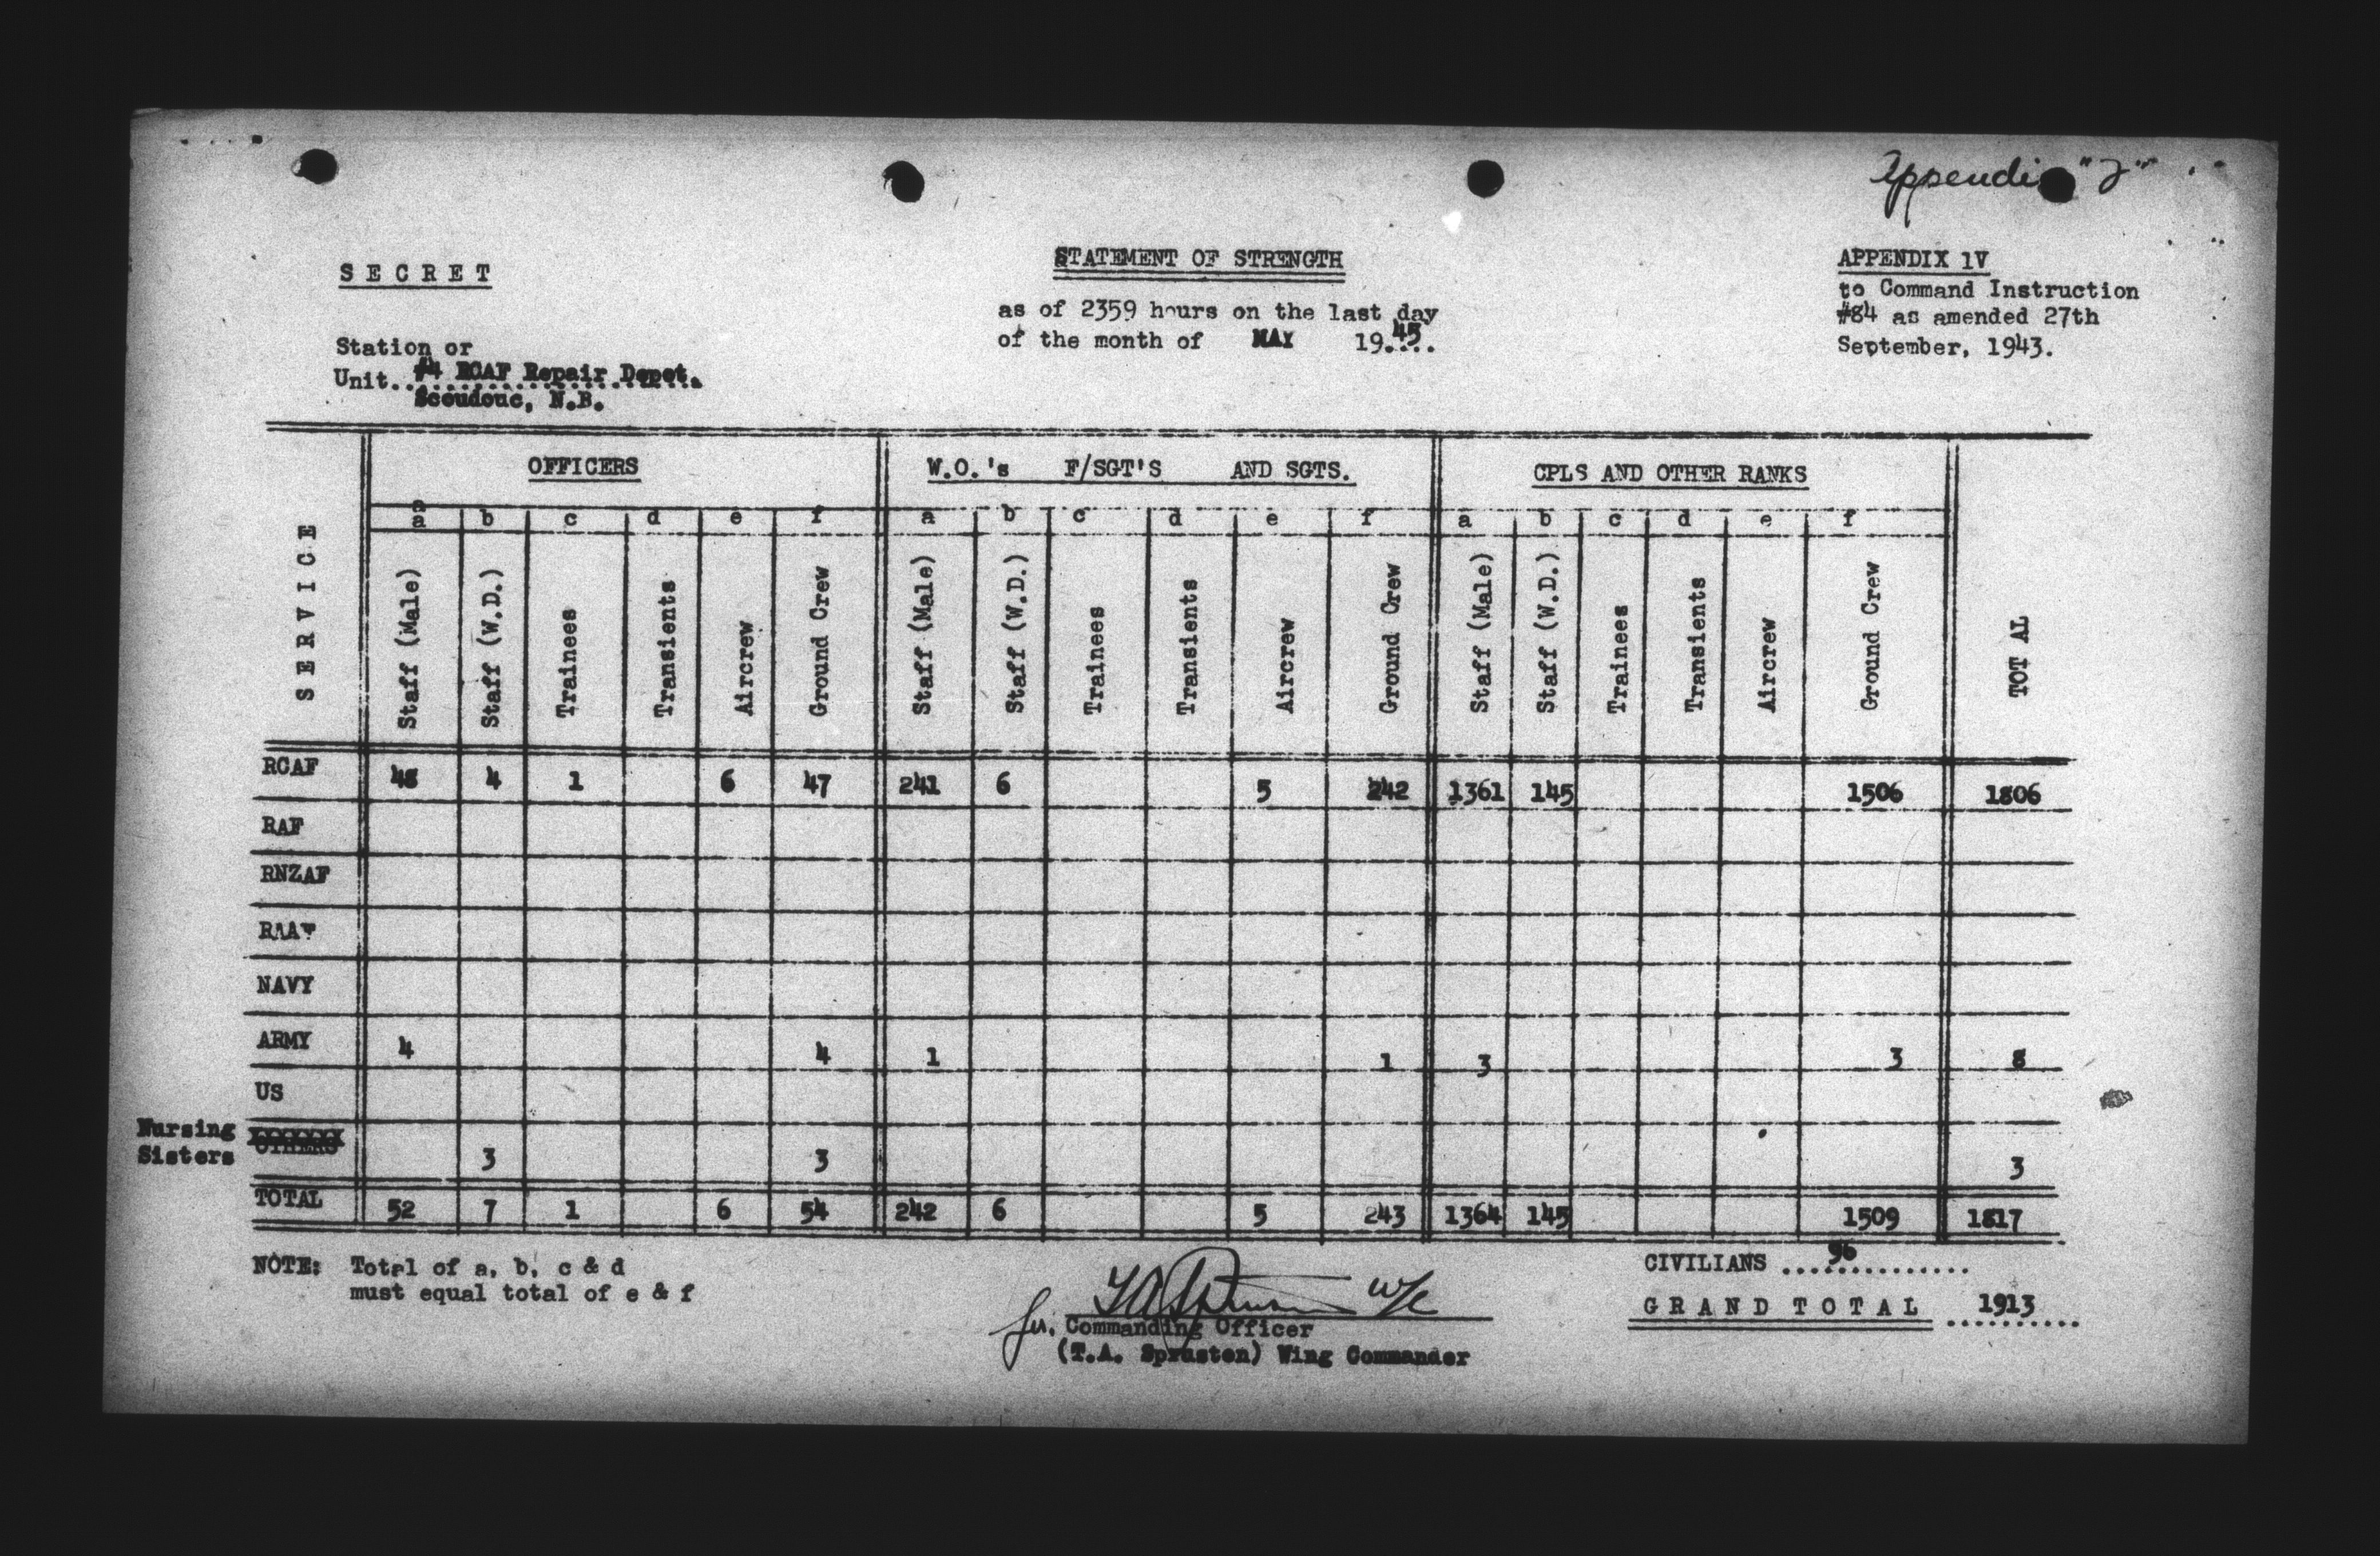 Appendix "J"
SECRET
STATEMENT OF STRENGTH
APPENDIX 1V
to Command Instruction
#84 as amended 27th
September, 1943.
as of 2359 hours on the last day
of the month of MAY 19.45..
Station or
Unit..#4 RCAF Repair Depot.
Scoudouc, N.B.
SERVICE OFFICERS W.O.'s F/SGT'S AND SGTS. CPLS AND OTHER RANKS TOTAL
a
a b c d e f a b c d e f a b c d e f
Staff (Male) Staff (W.D.) Trainees Transients Aircrew Ground Crew Staff (Male) Staff (W.D.) Trainees Transients Aircrew Ground Crew Staff (Male) Staff (W.D.) Trainees Transients Aircrew Ground Crew
RCAF 48 4 1 6 47 241 6 5 242 1361 145 1506 1806
RAF
RNZAF
RAAF
NAVY
ARMY 4 4 1 1 3 3 8
US
Nursing
Sisters OTHERS 3 3 3
TOTAL 52 7 1 6 54 242 6 5 243 1364 145 1509 1817
NOTE: Total of a, b, c & d
must equal total of e & f
CIVILIANS ....96..............
GRAND TOTAL 1913
W/C
for. Commanding Officer
(T.A. Spruston) Wing Commander